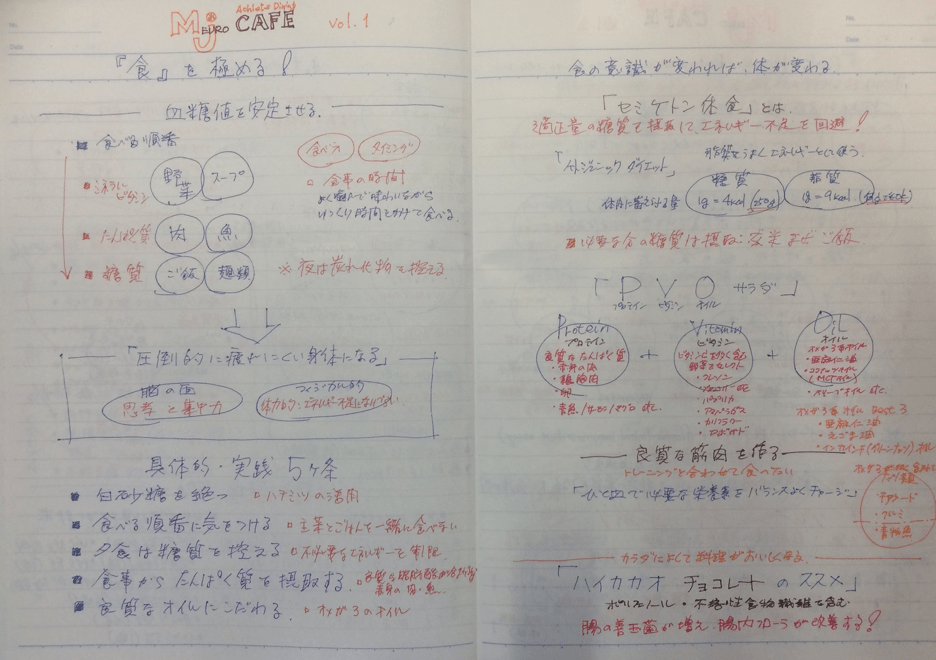 MJ EDRO Athlete Dining CAFE vol.1
『食』を極める!
血糖値を安定させる。
食べる順番
食べ方 タイミング
ミネラル ビタミン 野菜 スープ
食事の時間!
よく噛んで味わいながら
ゆっくり時間をかけて食べる。
たんぱく質 肉 魚
糖質 ご飯 麺類 ※夜は炭水化物を控える
「圧倒的に疲れにくい身体になる」
脳の面 フィジカル的
思考と集中力 体力的・エネルギー不足にならない
具体的・実践 5ヶ条
白砂糖を絶つ ハチミツの活用
食べる順番に気をつける 主菜とごはんを一緒に食べない
夕食は糖質を控える 不必要なエネルギーを制限
食事からたんぱく質を摂取する
良質なオイルにこだわる。 オメガ3のオイル
食の意識が変われば、体が変わる。
「セミケトン体食」とは
適正量の糖質を摂取して、エネルギー不足を回避!
脂質をうまくエネルギーとして使う。
「ケトジェニックダイエット」
糖質 脂質
体内に蓄えられる量 1g=4kcal 1g=9kcal
必要な分の糖質は摂取:玄米 まぜご飯
「PVO サラダ」
プロテイン ビタミン オイル
Protein Vitamin Oil
プロテイン + ビタミン + オイル
良質なたんぱく質
・赤身の肉
・鶏胸肉
・卵
野菜をセレクト
・パプリカ
・アスパラガス
・カリフラワー
・アボカド
オメガ3系オイル
・亜麻仁油
・ココナッツオイル
(MCTオイル)
・オリーブオイル etc.
オメガ3系オイル Best 3
・亜麻仁油
・えごま油
・インカインチ(グリーンナッツ)オイル
良質な筋肉を作る
トレーニングと合わせて食べたい
「ひと皿で必要な栄養素をバランスよくチャージ」
・クルミ
・青魚
カラダによくて料理がおいしくなる
「ハイカカオ チョコレートのススメ」
ポリフェノール・不溶性食物繊維を含む
腸の善玉菌が増え、腸内フローラが改善する!